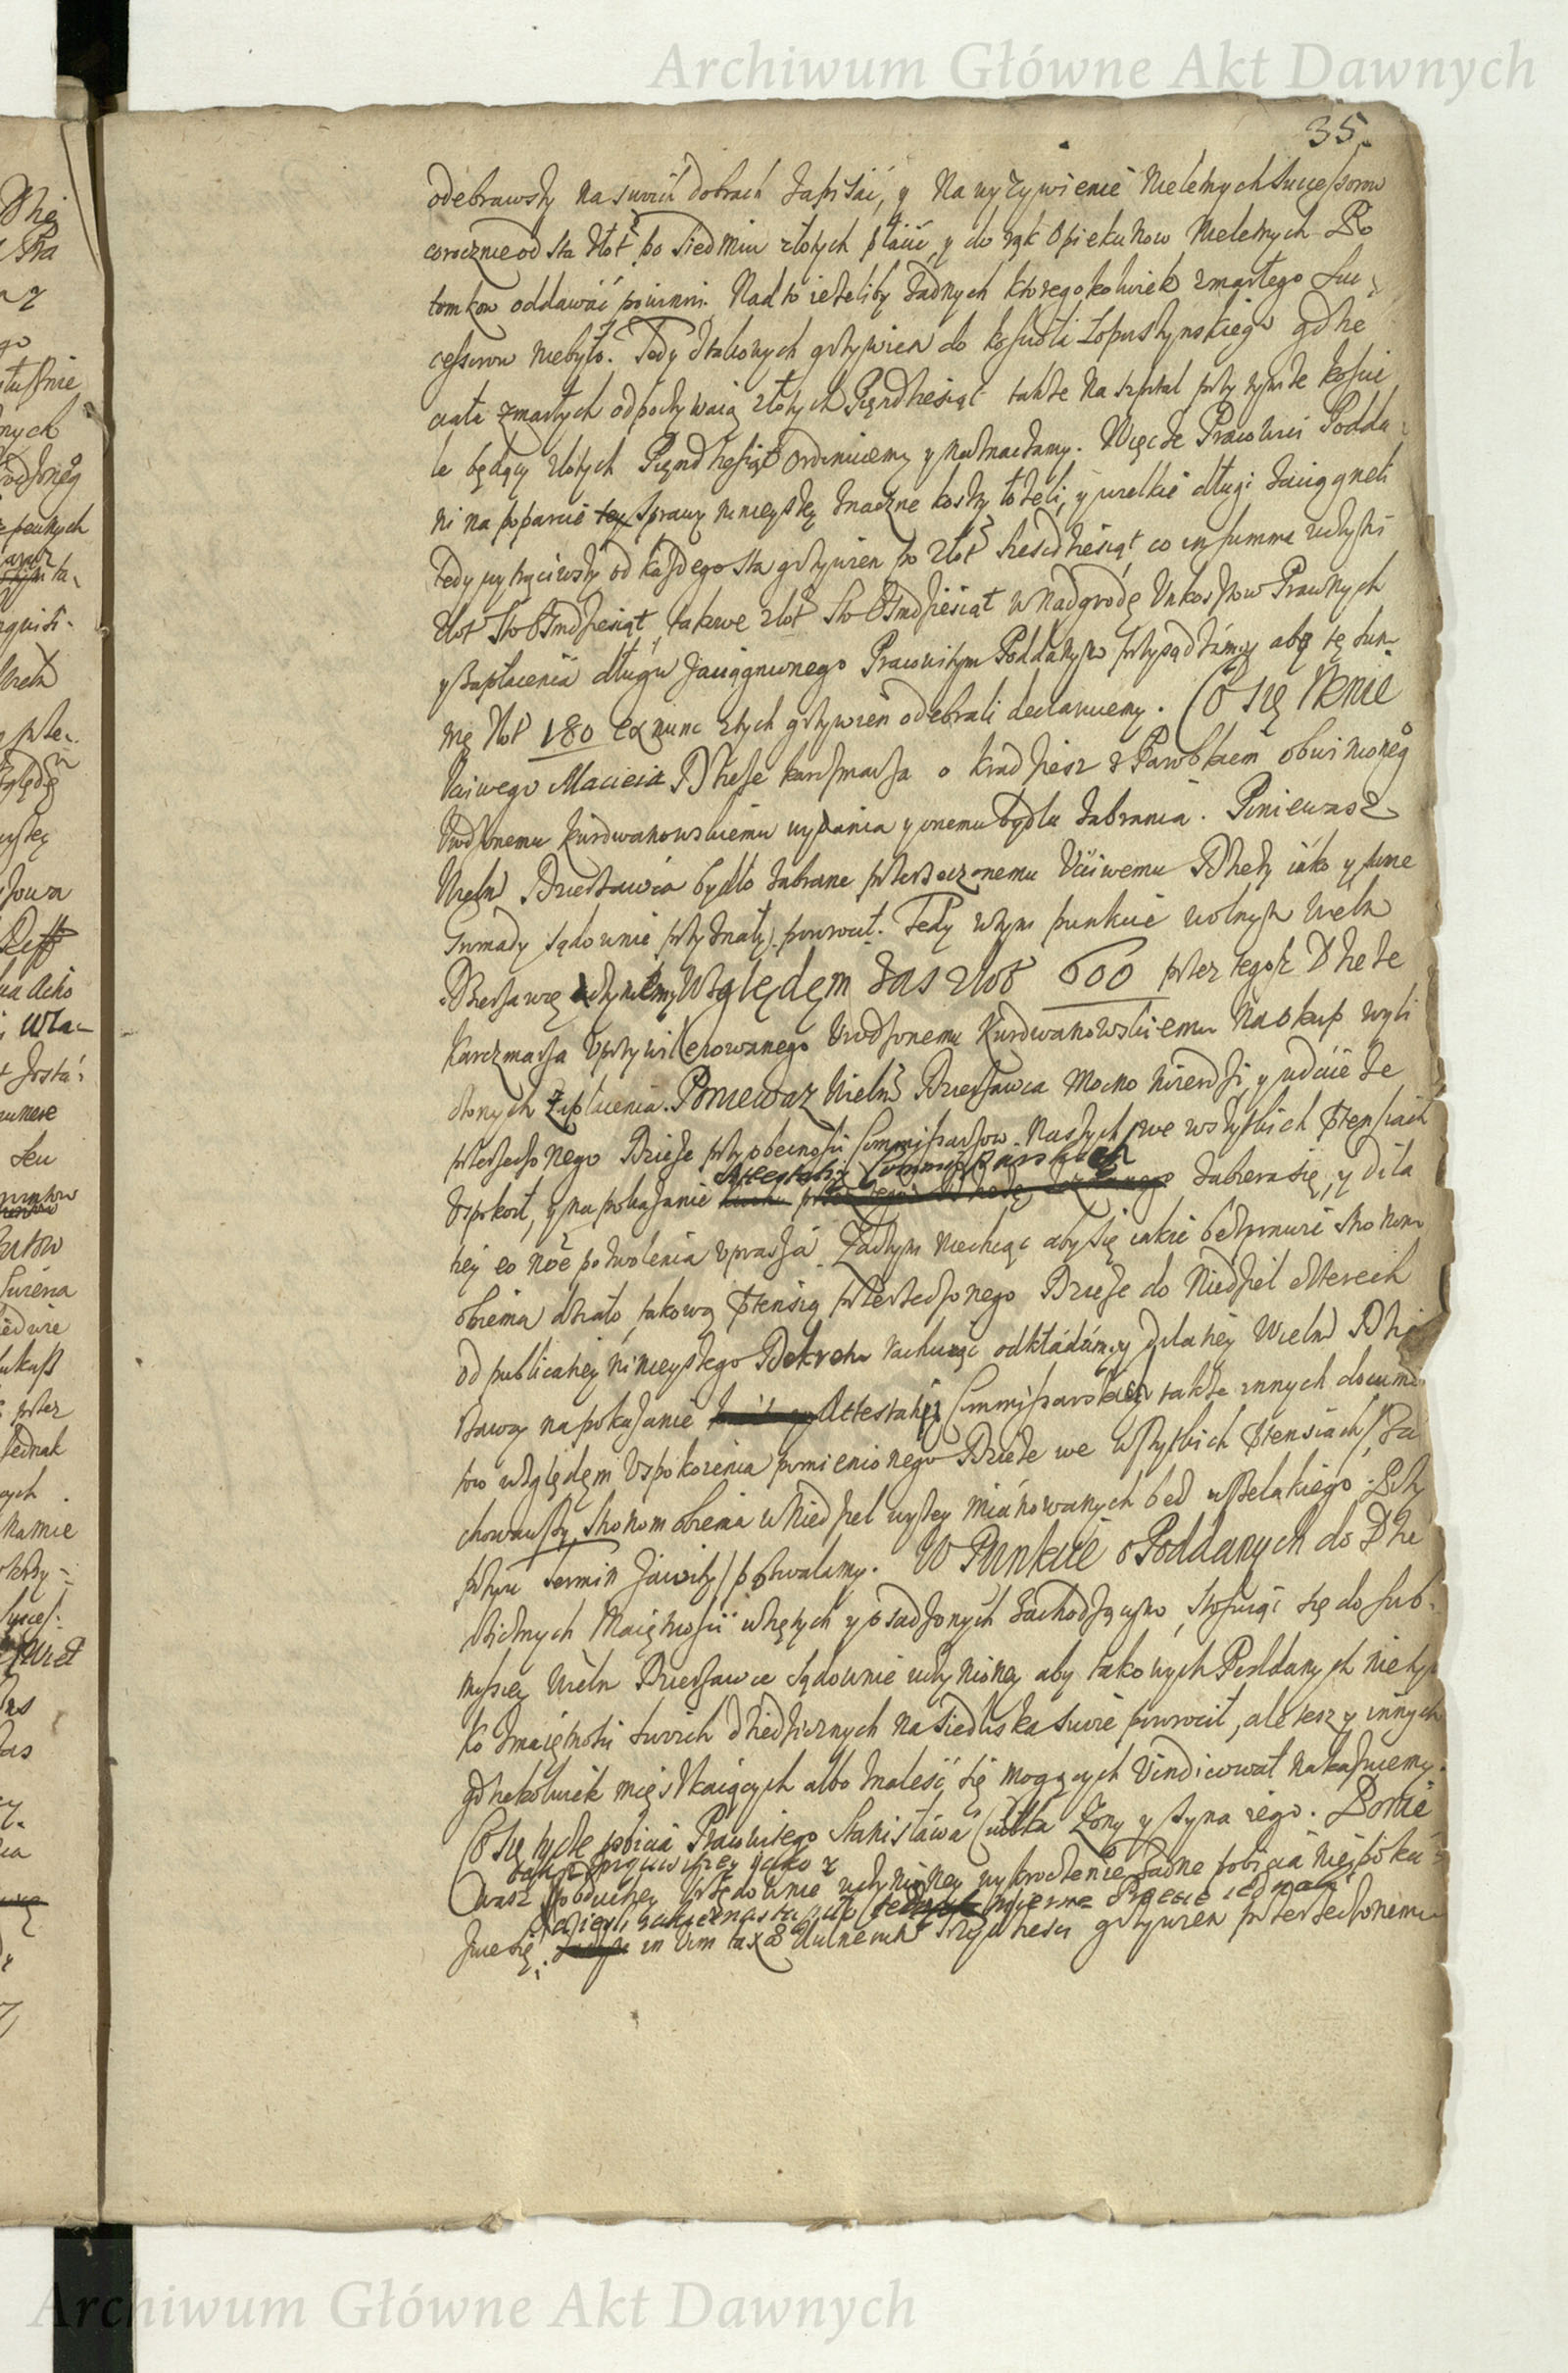 Archiwum Główne Akt Dawnych
35.
odebrawszy na swoich dobrach zapisać, y na wyżywienie Nieletnych Successorow
corocznie od sta złot. po siedmiu złotych płacić, y do rąk Opiekunow Nieletnych Po
tomkow oddawać powinni. Nad to ieżeliby żadnych ktoregokolwiek zmarłego Suc
cessorow niebyło. Tedy z takowych grzywien do kościoła Łopuszynskiego gdzie
ciała zmarłych odpoczywaią złotych Pięćdziesiąt także na szpital przy tymże koście
le będący złotych Pięćdziesiąt ordinuiemy y naznaczamy. Więc że Pracowici Podda
ni na poparcie tey Sprawy ninieyszey znaczne koszty łożeli, y wielkie długi zaciągneli
Tedy wytrąciwszy od każdego sta grzywien po złot. sześćdziesiąt co in summa uczyni
złot. Sto Ośmdziesiąt, takowe złot. Sto Ośmdziesiąt w nadgrodę Unkosztow Prawnych
y zapłacenia długu zaciągnionego Pracowitym Poddanym przysądzamy aby tę Sum
mę złot. 180 ex nunc z tych grzywien odebrali declaruiemy. Co się tknie
Uciwego Macieia Dzieże karczmarza o kradzież z Parobkiem obwinioneg
Urodzonemu Kurdwanowskiemu wydania y onemu bydła zabrania. Ponieważ
Wieln. Dzierżawca bydło zabrane przerzeczonemu Uciwemu Dzieży iako y sune
Gromady sądownie przyznały powrocił. Tedy w tym punkcie wolnym Wieln.
Dzierżawcę uczyniemy Względem zas złot. 600 przez tegoż Dzieże
Karczmarza Uprzywilerowanego Urodzonemu Kurdwanowskiemu na okup wyli
czonych zapłacenia. Ponieważ Wieln. Dzierżawca mocno twierdzi, y udaie że
przerzeczonego Dzieże przy obecności Commissarzow Naszych we wszytkich ptensiach
Attestatiy Commissarskich
Uspokoił, y na pokazanie zabiera się, y dila
tiey eo noe pozwolenia uprasza. Zaczym niechcąc aby się iakie bezprawie stronom
obiema działo, takową ptensią przerzeczonego Dzieże do Niedziel czterech
od publicatiey ninieyszego Dekretu rachuiąc odkładamy, y dilatiey Wieln. Dzie
rzawcy na pokazanie Attestatiy Commissarskiey także innych docum
tow względem Uspokoienia pomienionego Dzieże we wszytkich ptensiach, Za
chowawszy stronom obiema w Niedziel wyżey mianowanych bez wszelakiego Przy
pozwu Termin zawity pozwalamy. W Punkcie o Poddanych do Dzie
dzicznych Maiętności wziętych y osadzonych zachodzącym, stosuiąc się do Sub
missiey Wieln. Dzierżawce sądownie uczynioney aby takowych Poddanych nie tyl
ko z maiętności swoich dziedzicznych na siedliska swoie powrocił, ale tesz y innych
gdziekolwiek mięszkaiących albo znaleść się mogących Vindicował nakazuiemy.
Co się tycze pobicia Pracowitego Stanisława Żony y syna iego. Ponie
waż urzędownie uczynioney wykroczenie żadne pobicia nie poka
zuie się. in vim taxae vulnerum trzydzieści grzywien przerzeczonemu
Archiwum Główne Akt Dawnych